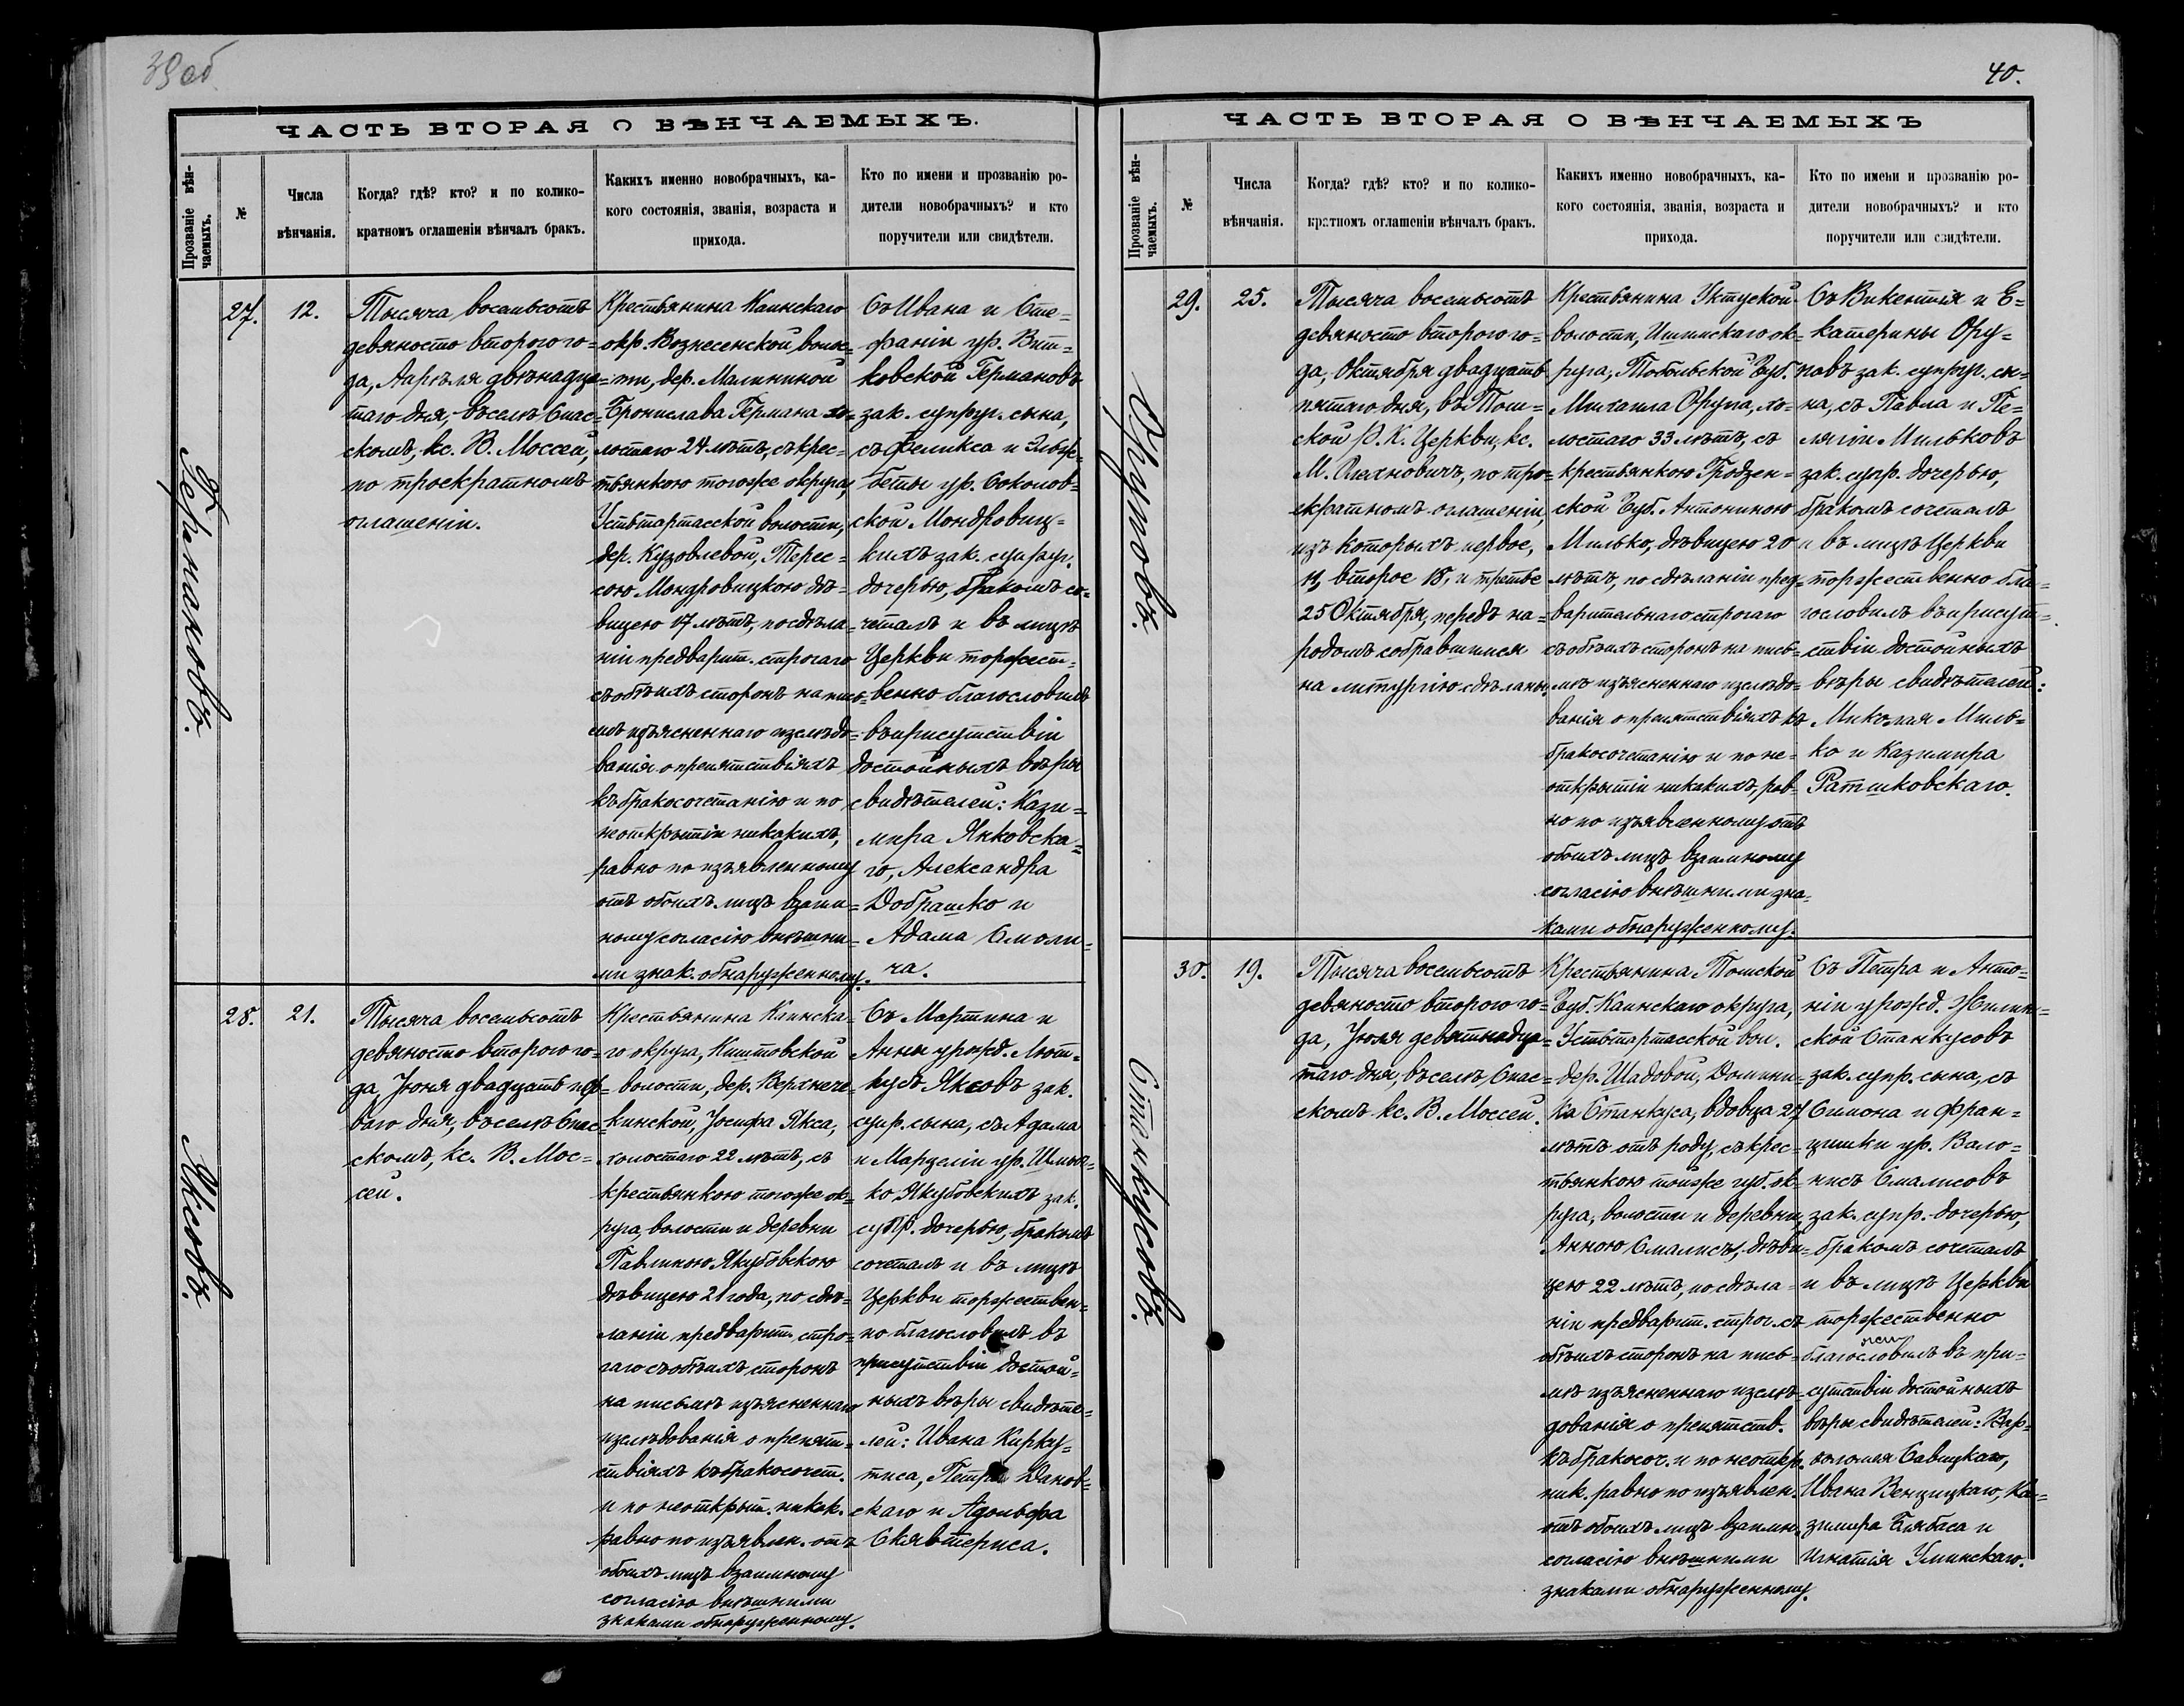 39 об
ЧАСТЬ ВТОРАЯ О ВѢНЧАЕМЫХЪ.
Прозваніе вѣн-
чаемыхъ.
№
Числа
вѣнчанія.
Когда? гдѣ? кто? и по колико-
кратномъ оглашеніи вѣнчалъ бракъ.
Какихъ именно новобрачныхъ, ка-
кого состоянія, званія, возраста и
прихода.
Кто по имени и прозванію ро-
дители новобрачныхъ? и кто
поручители или свидѣтели.
Германовъ.
27.
12.
Тысяча восемьсотъ
девяносто второго го=
да, Апрѣля двѣнадца=
таго дня, въ селѣ Спас=
скомъ, кс. В. Моссей,
по троекратномъ
оглашеніи.
Крестьянина Каинскаго
окр. Вознесенской волос=
ти, дер. Малининой
Бронислава Германа хо=
лостаго 24 лѣтъ, съ крес=
тьянкою тогоже округа,
Устьтартасской волости,
дер. Кузовлевой, Терес=
сою Мондровицкою дѣ=
вицею 17 лѣтъ, по сдѣла=
ніи предварит. строгаго
съ обѣихъ сторонъ на пись=
мѣ изъясненнаго изслѣдо=
ванія о препятствіяхъ
къ бракосочетанію и по
неоткрытіи никакихъ,
равно по изъявленному
отъ обоихъ лицъ взаим=
ному согласію внѣшни=
ми знак. обнаруженному.
Съ Ивана и Сте=
фаніи ур. Вит=
ковской Германовъ
зак. супруг. сына,
съ Феликса и Эльж=
беты ур. Соколов=
ской Мондровиц=
кихъ зак. супруг.
дочерью, бракомъ со=
четалъ и въ лицѣ
Церкви торжест=
венно благословилъ
въ присутствіи
достойныхъ вѣры
свидѣтелей: Кази=
мира Янковска=
го, Александра
Добрашко и
Адама Смоли=
ча.
Яксовъ.
28.
21.
Тысяча восемьсотъ
девяносто второго го=
да, Іюня двадцать пер=
ваго дня, въ селѣ Спас=
скомъ, кс. В. Мос=
сей.
Крестьянина Каинска=
го округа, Киштовской
волости, дер. Верхнече=
кинской, Іосифа Якса,
холостаго 22 лѣтъ, съ
крестьянкою тогоже ок=
руга, волости и деревни
Павлиною Якубовскою
дѣвицею 21 года, по сдѣ=
ланіи предварит. стро=
гаго съ обѣихъ сторонъ
на письмѣ изъясненнаго
изслѣдованія о препят=
ствіяхъ къ бракосочет.
и по неоткрыт. никак.
равно по изъявлен. отъ
обоихъ лицъ взаимному
согласію внѣшними
знаками обнаруженному.
Съ Мартина и
Анны урожд. Лют=
кусъ Яксовъ зак.
супр. сына, съ Адама
и Марцеліи ур.
ко Якубовскихъ зак.
супр. дочерью, бракомъ
сочеталъ и въ лицѣ
Церкви торжествен=
но благословилъ въ
присутствіи достой=
ныхъ вѣры свидѣте=
лей: Ивана Кирку=
тиса, Петра Данов=
скаго и Адольфа
Скявтериса.
40.
ЧАСТЬ ВТОРАЯ О ВѢНЧАЕМЫХЪ
Прозваніе вѣн-
чаемыхъ.
№
Числа
вѣнчанія.
Когда? гдѣ? кто? и по колико-
кратномъ оглашеніи вѣнчалъ бракъ.
Какихъ именно новобрачныхъ, ка-
кого состоянія, званія, возраста и
прихода.
Кто по имени и прозванію ро-
дители новобрачныхъ? и кто
поручители или свидѣтели.
Оруповъ.
29.
25.
Тысяча восемьсотъ
девяносто второго го=
да, Октября двадцать
пятаго дня, въ Том=
ской Р. К. Церкви, кс.
М. Олехновичъ, по тро=
екратномъ оглашеніи,
изъ которыхъ первое,
11, второе 18, и третье
25 Октября, передъ на=
родомъ собравшимся
на литургію сдѣланы.
Крестьянина Уктуской
волости, Ишимскаго ок=
руга, Тобольской Губ.
Михаила Орупа, хо=
лостаго 33 лѣтъ, съ
крестьянкою Гродзен=
ской Губ. Антониною
Милько, дѣвицею 20
лѣтъ, по сдѣланіи пред=
варительнаго строгаго
съ обѣихъ сторонъ на пись=
мѣ изъясненнаго изслѣдо=
ванія о препятствіяхъ къ
бракосочетанію и по не=
открытіи никакихъ, рав=
но по изъявленному отъ
обоихъ лицъ взаимному
согласію внѣшними зна=
ками обнаруженному.
Съ Викентія и Е=
катерины Ору=
повъ зак. супруг. сы=
на, съ Павла и Пе=
лягіи Мильковъ
зак. супр. дочерью,
бракомъ сочеталъ
и въ лицѣ Церкви
торжественно бла=
гословилъ въ присут=
ствіи достойныхъ
вѣры свидѣтелей:
Миколая Миль=
ко и Казимира
Ратшковскаго.
Станкусовъ.
30.
19.
Тысяча восемьсотъ
девяносто второго го=
да, Іюля девятнадца=
таго дня, въ селѣ, Спас=
скомъ кс. В. Моссей.
Крестьянина Томской
Губ. Каинскаго округа,
Устьтартасской вол.
дер. Шадовой, Домини=
ка Станкуса, вдовца 27
лѣтъ отъ роду, съ крес=
тьянкою тойже губ. ок=
руга, волости и деревни,
Анною Смалисъ, дѣви=
цею 22 лѣтъ, по сдѣла=
ніи предварит. строг. съ
обѣихъ сторонъ на пись=
мѣ изъясненнаго изслѣ=
дованія о препятств.
къ бракосоч. и по неоткр.
ник. равно по изъявлен.
отъ обоихъ лицъ взаимн.
согласію внѣшними
знаками обнаруженному.
Съ Петра и Анто=
ніи урожд. Жилин=
ской Станкусовъ
зак. супр. сына, съ
Симона и Фран=
цишки ур. Вало=
нисъ Смалисовъ
зак. супр. дочерью,
бракомъ сочеталъ
и въ лицѣ Церкви
торжественно
благословилъ въ при=
сутствіи достойныхъ
вѣры свидѣтелей: Вар=
ѳоломея Савицкаго,
Ивана Венцицкаго, Ка=
зимира Блябаса и
Игнатія Уминскаго.